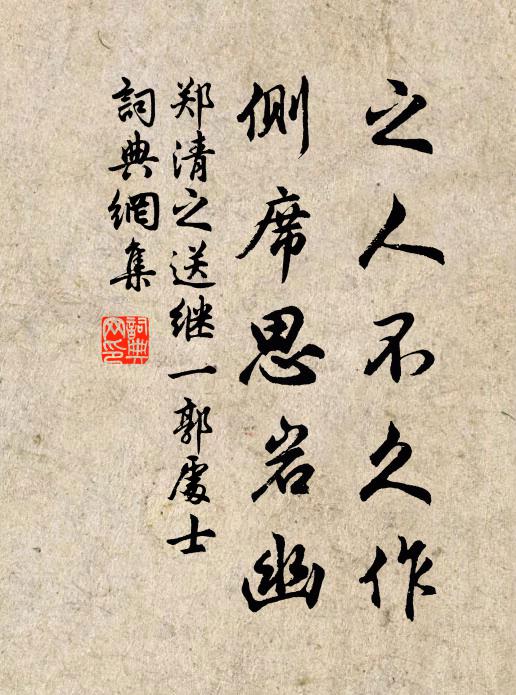 之人不久作
侧席思岩幽
郑清之送继一郭處士
詞典網集
詞典
网印